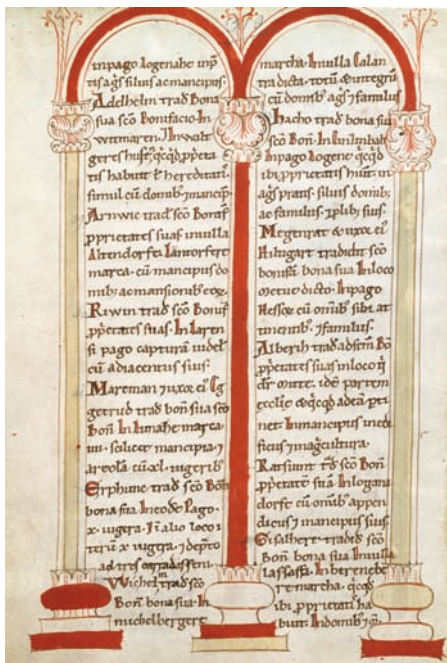 inpago logenahe in
tis agis siluis ac mancipiis·
Adelhelm trad bona
sua sco Bonifacio·In
witmaren· In walt
geres
tatis habuit & hereditati
simul cu domib; mancip
Arnwic trad sco Bonif
pprietates suas inuilla
Altendorfe· Lantorfere
marca· cu mancipiis do
mib; ac mansionib; eoru
Riwin trad sco Bonif
pprietates suas· In laren
si pago capturam uidel
cu adiacentiis suis·
Mareman
gertrud trad bon sua sco
Bon In marca·
iiii· scilicet mancipia 7
areola cu xl· iugerib;
Erphune trad sco Bon
bona sua Pago·
x· iugera· 7 in alio loco i
teru x iugera·
ad tres carradas feni·
Wichelm trad sco
Bon bona sua· In
michelbergere
marcha· In uilla Salan
tra dicta· totu & integru
cu domib; agis 7 familiis
Hacho trad bona sua
sco Bon· In
In pago Logene qcqd
ibi pprietatis hunt in
agis pratis· siluis domib;
ac familiis· suis·
Megenrat & uxor ei
Hiltigart tradidit sco
bonifa bona sua In loco
dicto· In pago
Hessoe cu omib; sibi at
tinentib; 7 familiis·
Alberih trad ad sem Bo
pprietates suas in loco q
dr ide partem
& qcqd ad ea pti
net In mancipiis in edi
ficiis 7 cultura·
Ratsunt trd sco Bon
pprietate sua In logana
dorfe cu omib; appen
diciis 7 mancipiis suis·
Gisalbere tradid sco
Bon bona sua In uilla
Lassaffa· In berenebe
re marcha· qcqd
ibi pprietati ha
buit In domib;